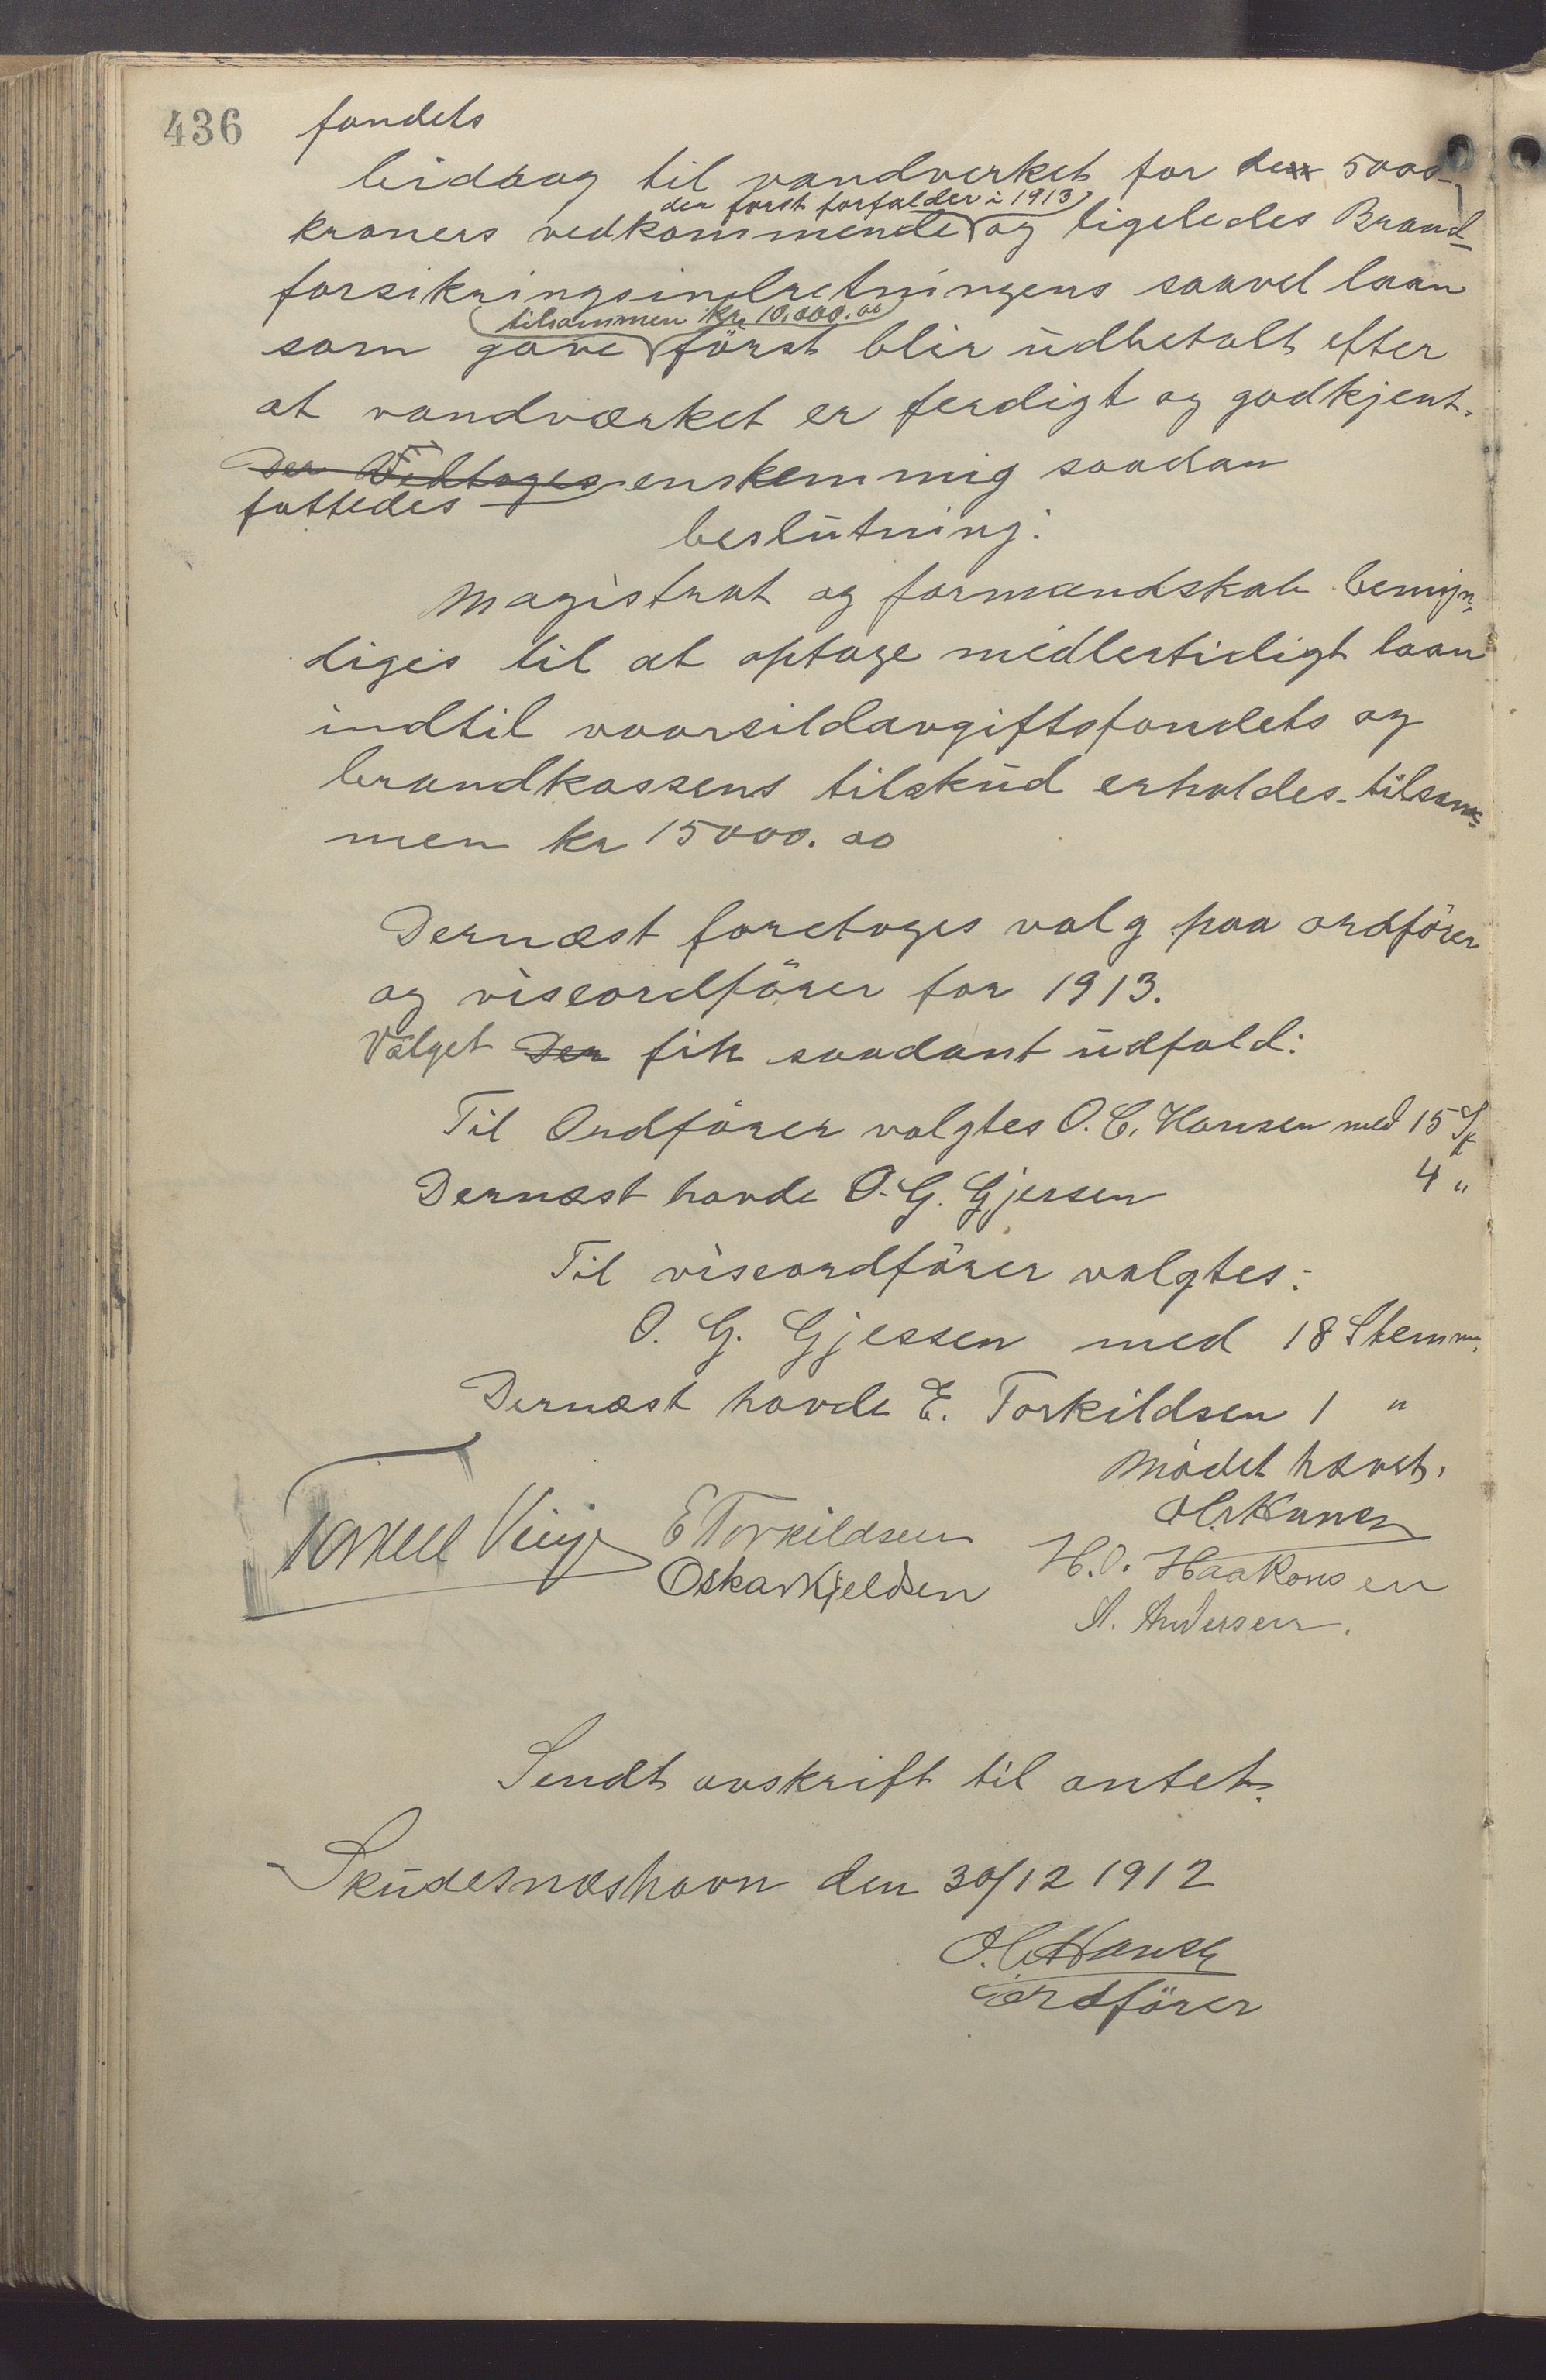 436 fondets
bidrag til vandverket for den 5000
der først forfalder i 1913
kroners vedkommende og ligeledes Brand-
forsikringsindretningens saavel laan
tilsammen kr. 10,000.00
som gave först blir udbetalt efter
at vandværket er ferdigt og godkjent.
Der Vedtages enstemmig saadan
fattedes
beslutning:
Magistrat og formandskab bemyn-
diges til at optage midlertidigt laan
indtil vaarsildavgiftsfondets og
brandkassens tilskud erholdes tilsam-
men kr 15000.00
Dernæst foretoges valg paa ordförer
og viseordförer for 1913.
Valget Den fik saadant udfald:
Til Ordförer valgtes O. C. Hansen med 15 St
Dernæst havde O. G. Gjessen 4 "
Til viseordförer valgtes:
O. G. Gjessen med 18 Stemm.
Dernæst havde E. Torkildsen 1 "
Mödet hævet.
O.C. Hansen
E Torkildsen
H. O. Haakonsen
Oskar Kjeldsen
A. Andersen.
Sendt avskrift til amtet.
Skudesnæshavn den 30/12 1912
O. C. Hansen
ordförer